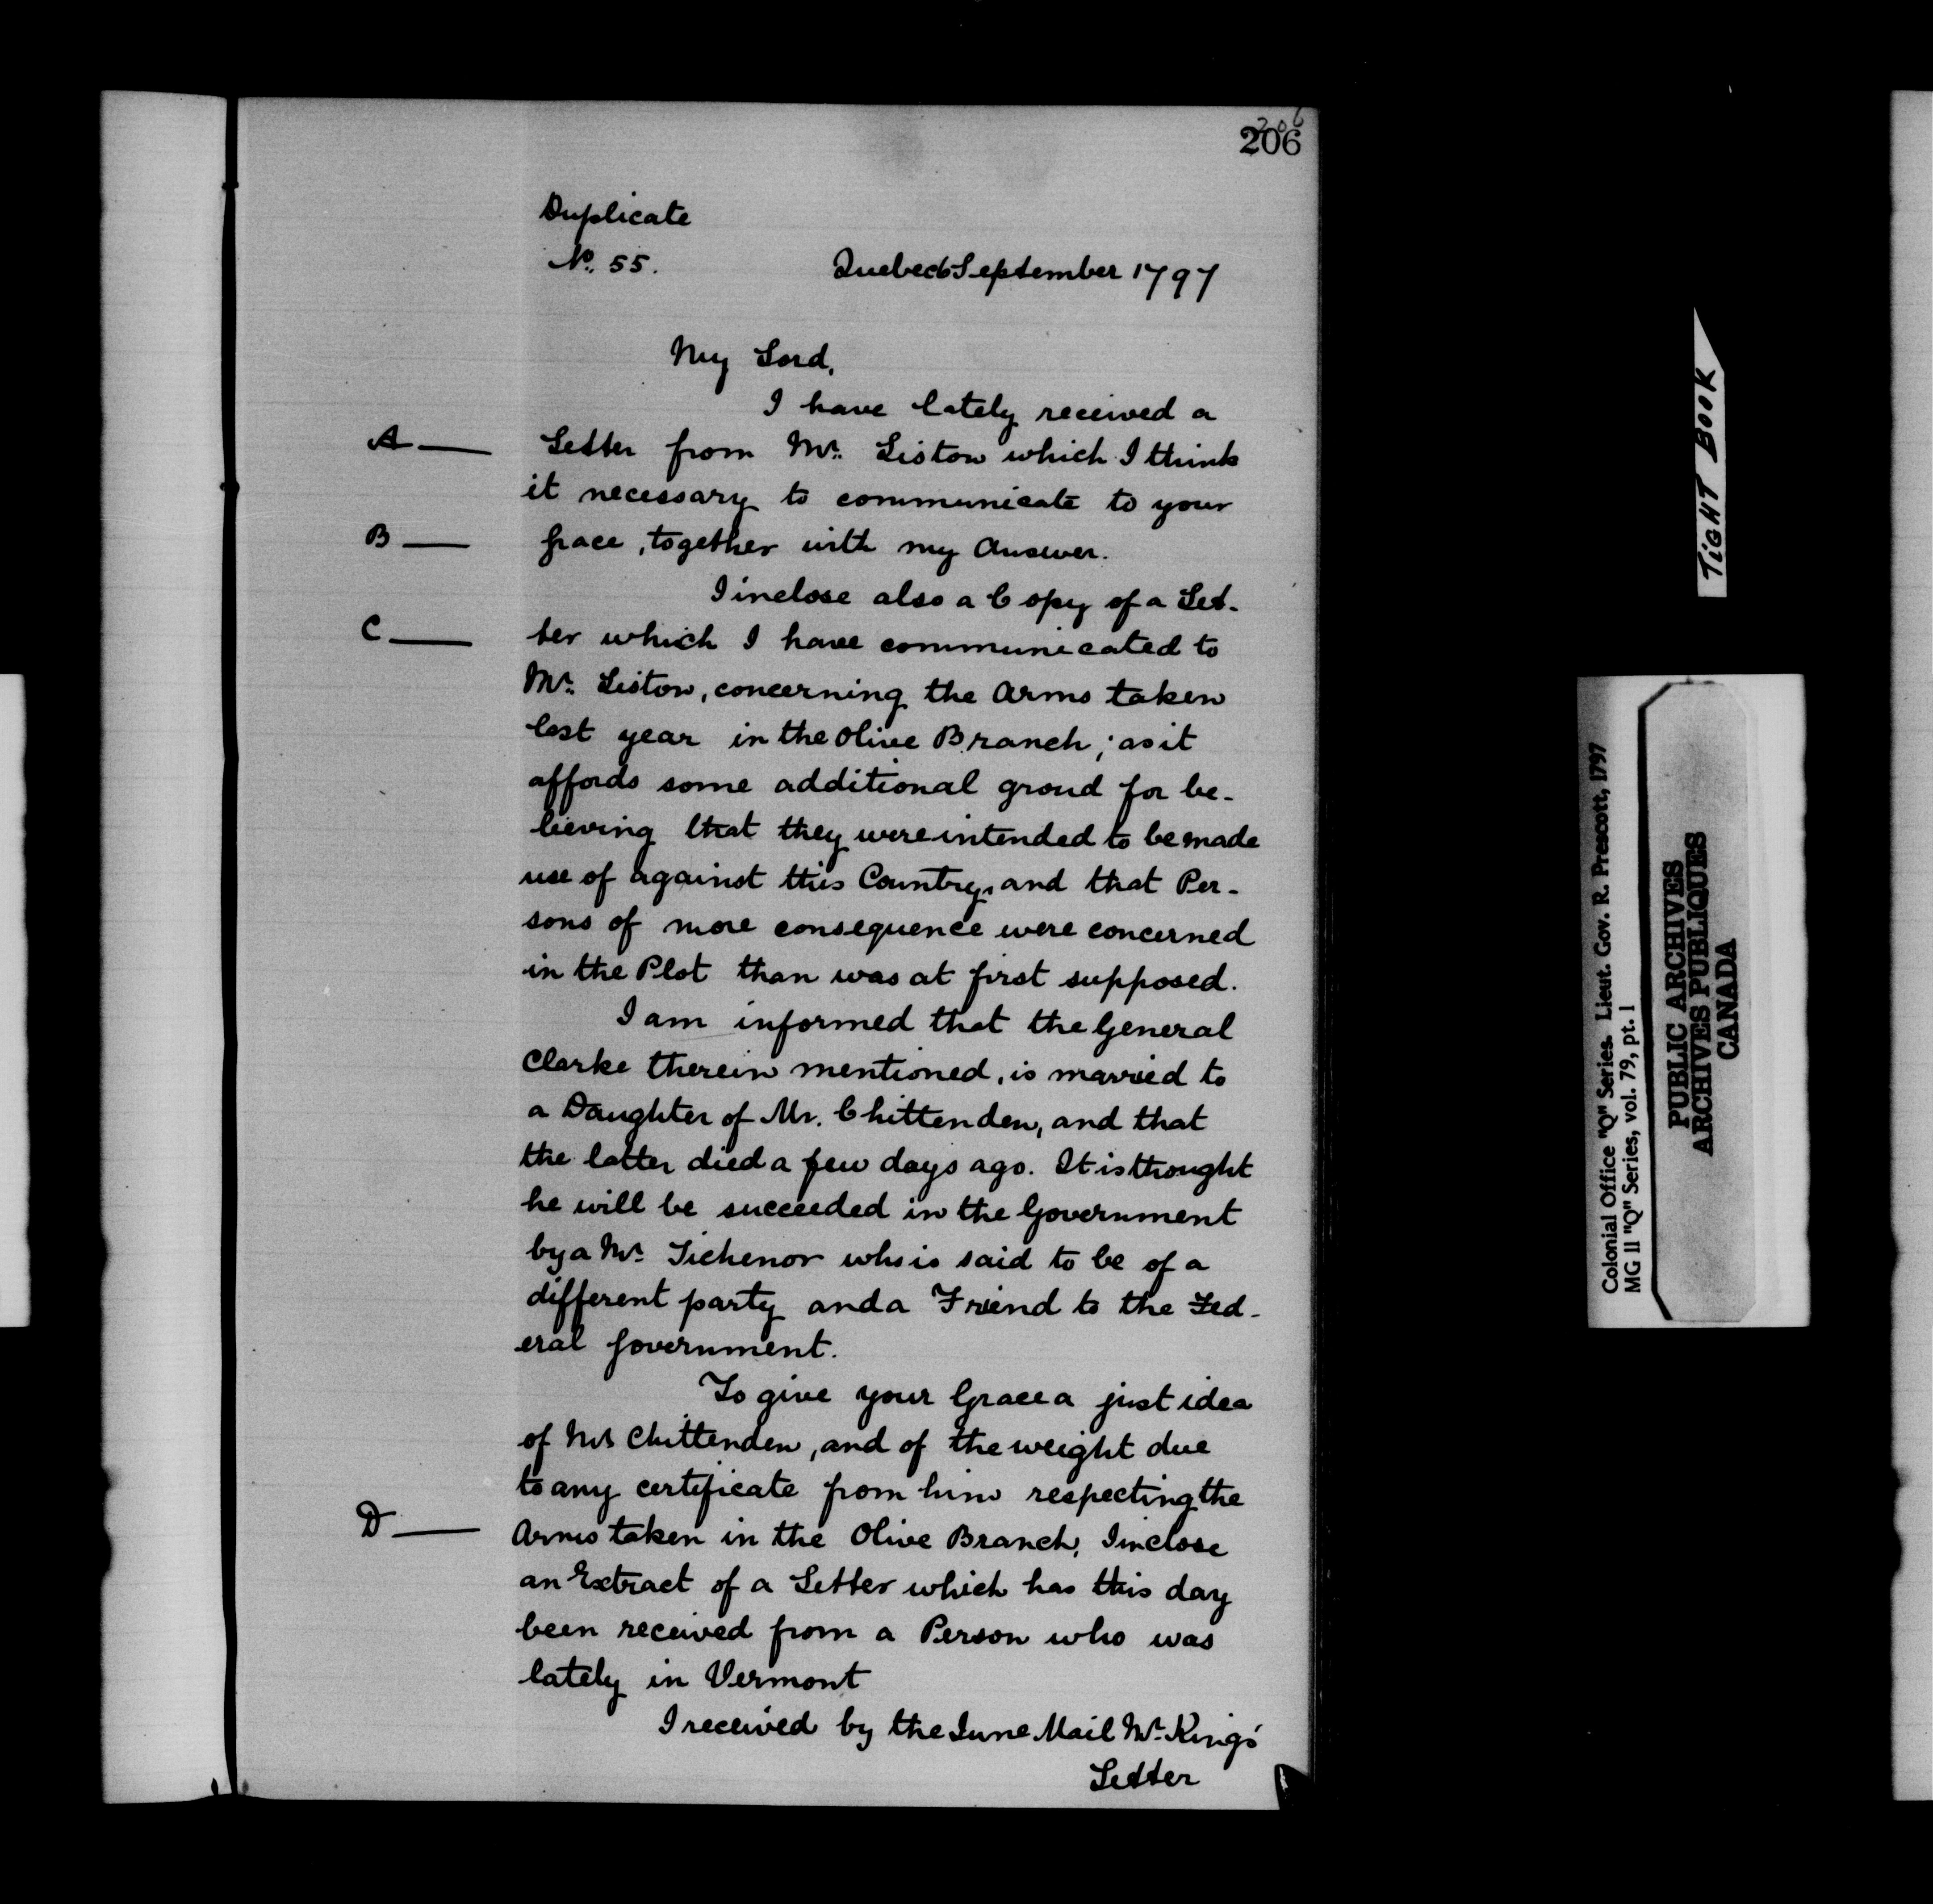 206
206
Duplicate
No. 55.
Quebec 6 September 1797
My Lord,
I have lately received a
A — Letter from Mr. Liston which I think
it necessary to communicate to your
B — Grace, together with my Answer.
I inclose also a Copy of a Let-
C — ter which I have communicated to
Mr. Liston, concerning the Arms taken
last year in the Olive Branch; as it
affords some additional groud for be-
lieving that they were intended to be made
use of against this Country, and that Per-
sons of more consequence were concerned
in the Plot than was at first supposed.
I am informed that the General
Clarke therein mentioned, is married to
a Daughter of Mr. Chittenden, and that
the latter died a few days ago. It is thought
he will be succeeded in the Government
by a Mr. Tichenor who is said to be of a
different party and a Friend to the Fed-
eral Government.
To give your Grace a just idea
of Mr. Chittenden, and of the weight due
to any certificate from him respecting the
D — Arms taken in the Olive Branch, I inclose
an Extract of a Letter which has this day
been received from a Person who was
lately in Vermont
I received by the June Mail Mr. King's
Letter
TIGHT BOOK
Colonial Office "Q" Series. Lieut. Gov. R. Prescott, 1797
MG 11 "Q" Series, vol. 79, pt. 1
PUBLIC ARCHIVES
ARCHIVES PUBLIQUES
CANADA